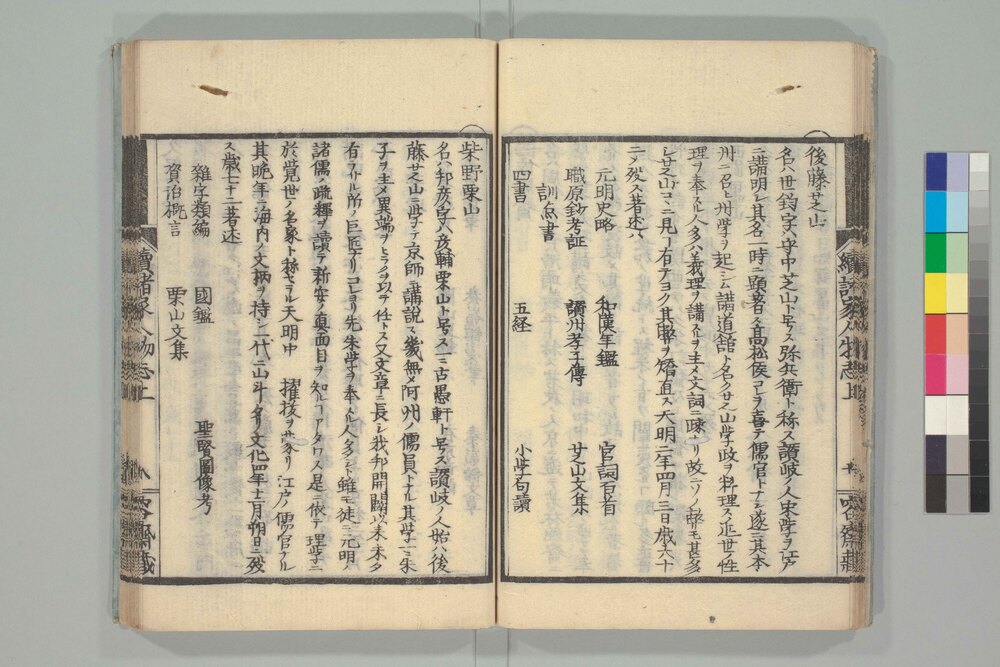 後藤芝山
名ハ世鈞字ハ守中芝山ト号ス弥兵衛ト称ス讃岐ノ人宋学ヲ江戸
ニ講明シ其名一時ニ顕著ス高松侯コヲ喜テ儒官トナシ遂ニ其本
州ニ召ヒ州学ヲ起シ講道舘ト名ク芝山学政ヲ料理ス近世ノ性
理ヲ奉スル人多ハ義理ヲ講スルヲ主メ文詞ニ疎ナリ故ニソノ弊モ甚多
シ芝山コヽニ見ル有テヨク其弊ヲ矯直ス天明二年四月三日歳六十
二ノ歿ス著述ハ
元明史略 和漢年鑑 官詞百首
職原鈔考証 讃州孝子傳 芝山文集
訓点書
四書 五経 小学句讀
續諸家人物志上
柴野栗山
名ハ邦彦字ハ彦輔栗山ト号ス一ニ古愚軒ト号ス讃岐ノ人始ハ後
藤芝山ニ学テ京師ニ講説ス幾無メ阿州ノ儒員トナル其学一ニ朱
子ヲ主メ異端ヲ 攻ヲ任トス又文章ニ長シ我邦開闢以来未タ
有ラサル所ノ巨匠ナリコレヨリ先朱学ヲ奉スル人多シト雖モ徒ニ元明ノ
諸儒ノ疏釋ヲ讀テ新安ノ真面目ヲ知ルコアタワス是ニ依テ理学ニ
於覺世ノ名家ト称セラル天明中 擢抜ヲ蒙リ江戸ノ儒官タル
其晩年ニ海内ノ文柄ヲ持シ一代ニ山斗タリ文化四年十二月朔日ニ歿
ス歳七十二著述
雜字類編 國鑑 聖賢圖像考
資治概言 栗山文集
續諸家人物志上